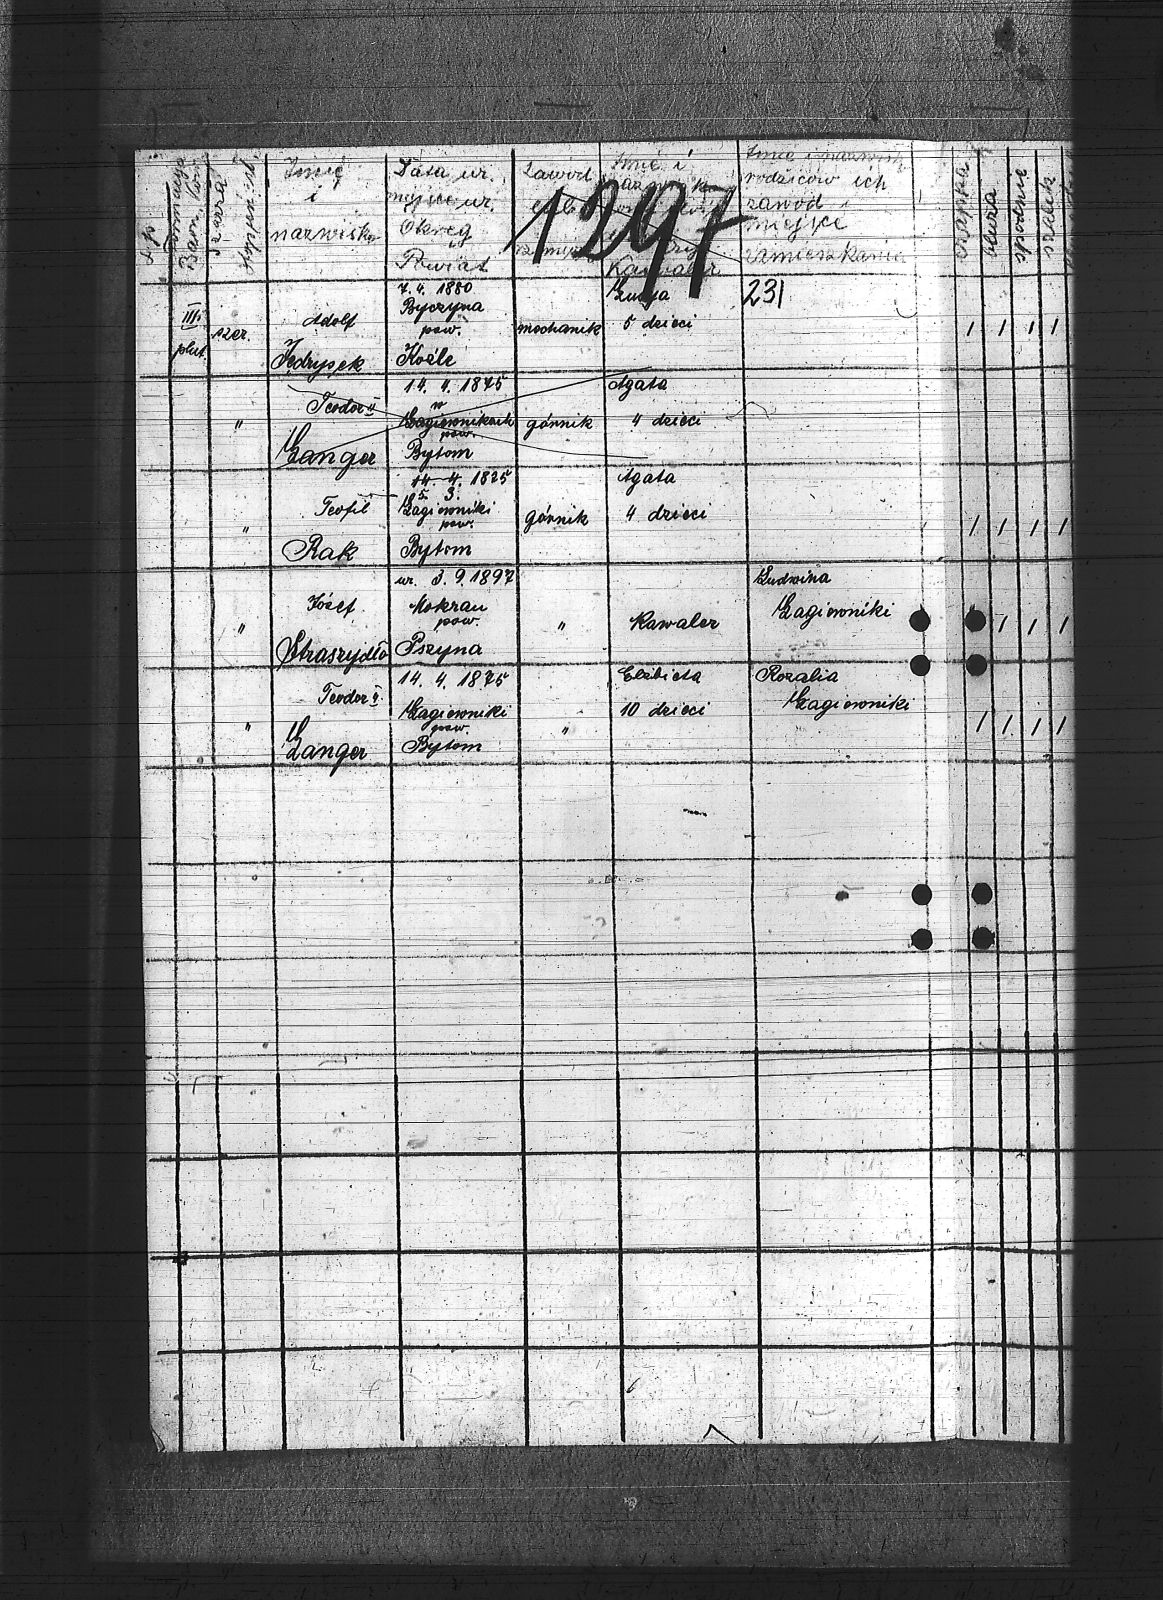 Imię
i
nazwisko
Data ur.
miejsce ur.
Okręg
i
Powiat
Zawód
Imię i
Kawaler
Imię i nazwisko
rodziców ich
zawód i
miejsce
zamieszkania
czapka
bluza
spodnie
1297
231
IIII
plut.
szer.
Adolf
Jędrysek
7. 4. 1880
Byczyna
pow.
Koźle
mechanik
5 dzieci
/ / / /
"
Teodor II
Langer
14. 4. 1875
w
Łagiewnikach
pow.
Bytom
górnik
Agata
4 dzieci
"
Teofil
Rak
14. 4. 1875
5. 3.
Łagiewniki
pow.
Bytom
górnik
Agata
4 dzieci
/ / / /
"
Józef
Straszydło
ur. 3. 9. 1897
Mokrau
pow.
Pszyna
"
Kawaler
Ludwina
Łagiewniki
/ / /
"
Teodor II
Langer
14. 4. 1875
Łagiewniki
pow.
Bytom
"
Elżbieta
10 dzieci
Rozalia
Łagiewniki
/ / / /